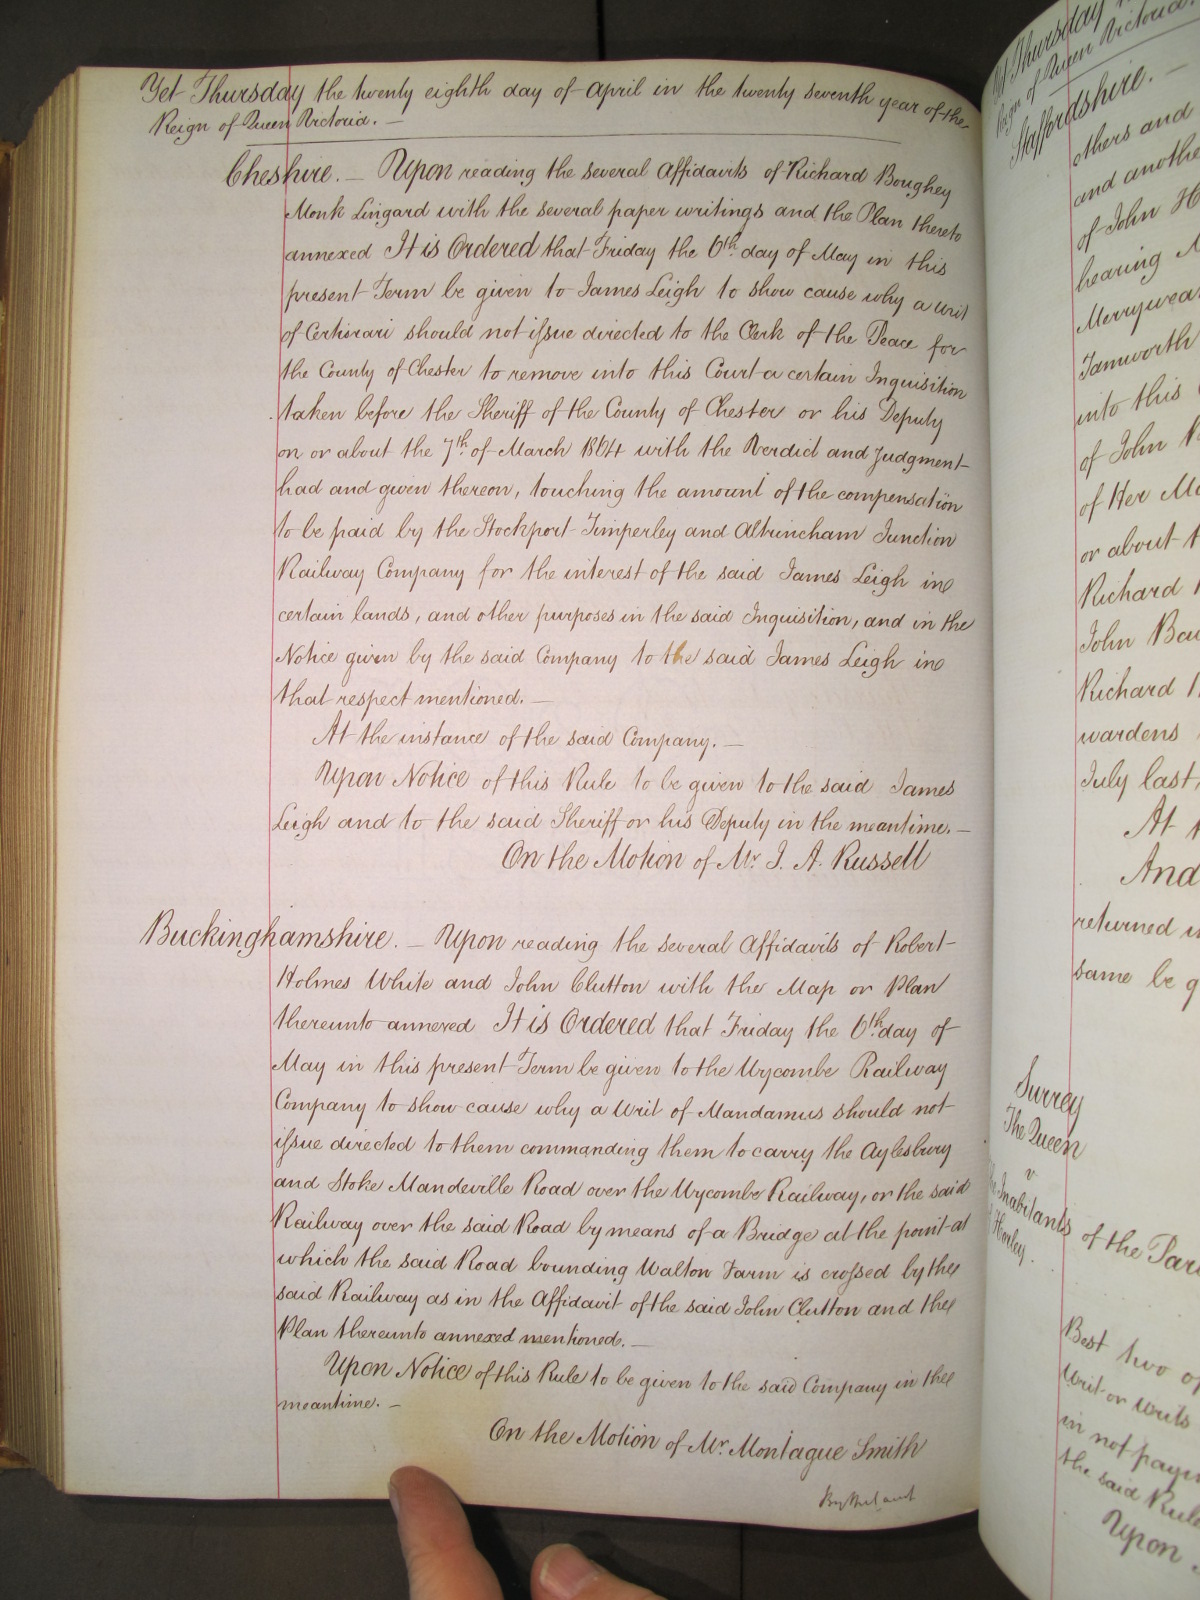 Yet Thursday the twenty eighth day of April in the twenty seventh year of the
Reign of Queen Victoria. —
Cheshire. — Upon reading the several Affidavits of Richard Boughey
Monk Lingard with the several paper writings and the Plan thereto
annexed It is Ordered that Friday the 6th. day of May in this
present Term be given to James Leigh to show cause why a writ
of Certiorari should not issue directed to the Clerk of the Peace for
the County of Chester to remove into this Court a certain Inquisition
taken before the Sheriff of the County of Chester or his Deputy
on or about the 7th. of March 1864 with the Verdict and Judgment
had and given thereon, touching the amount of the compensation
to be paid by the Stockport Timperley and Altrincham Junction
Railway Company for the interest of the said James Leigh in
certain lands, and other purposes in the said Inquisition, and in the
Notice given by the said Company to the said James Leigh in
that respect mentioned. —
At the instance of the said Company. —
Upon Notice of this Rule to be given to the said James
Leigh and to the said Sheriff or his Deputy in the meantime. —
On the Motion of Mr. J. A. Russell
Buckinghamshire. — Upon reading the several Affidavits of Robert
Holmes White and John Clutton with the Map or Plan
thereunto annexed It is Ordered that Friday the 6th. day of
May in this present Term be given to the Wycombe Railway
Company to show cause why a Writ of Mandamus should not
issue directed to them commanding them to carry the Aylesbury
and Stoke Mandeville Road over the Wycombe Railway, or the said
Railway over the said Road by means of a Bridge at the point at
which the said Road bounding Walton Farm is crossed by the
said Railway as in the Affidavit of the said John Clutton and the
Plan thereunto annexed mentioned. —
Upon Notice of this Rule to be given to the said Company in the
meantime. —
On the Motion of Mr. Montague Smith
By the Court
Yet Thursday
Reign of Queen Victoria.
Staffordshire. —
others and
and another
of John H
hearing M
Merryweat
Tamworth
into this
of John
of Her Ma
or about t
Richard
John Bau
Richard
wardens
July last,
At
And
returned
same be g
Surrey
The Queen
v
the Inhabitants of the Pari
of Horley.
Best two of
Writ or Writs
in not payin
the said Rule
Upon